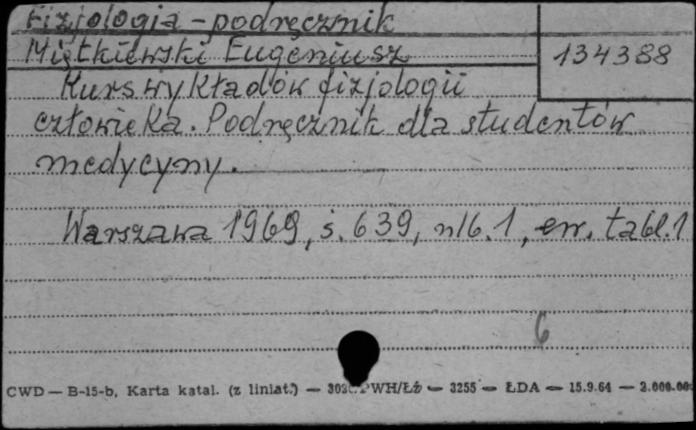 Fizjologia - podręcznik
Miętkiewski Eugeniusz
134388
Kurs wykładów fizjologii
człowieka. Podręcznik dla studentów
medycyny.
Warszawa 1969, s. 639, nlb. 1, err. tabl. 1
6
CWD — B-15-b, Karta katal. (z liniat.) — PWH/Łź — 3255 — ŁDA — 15.9.64 — 2.000.00